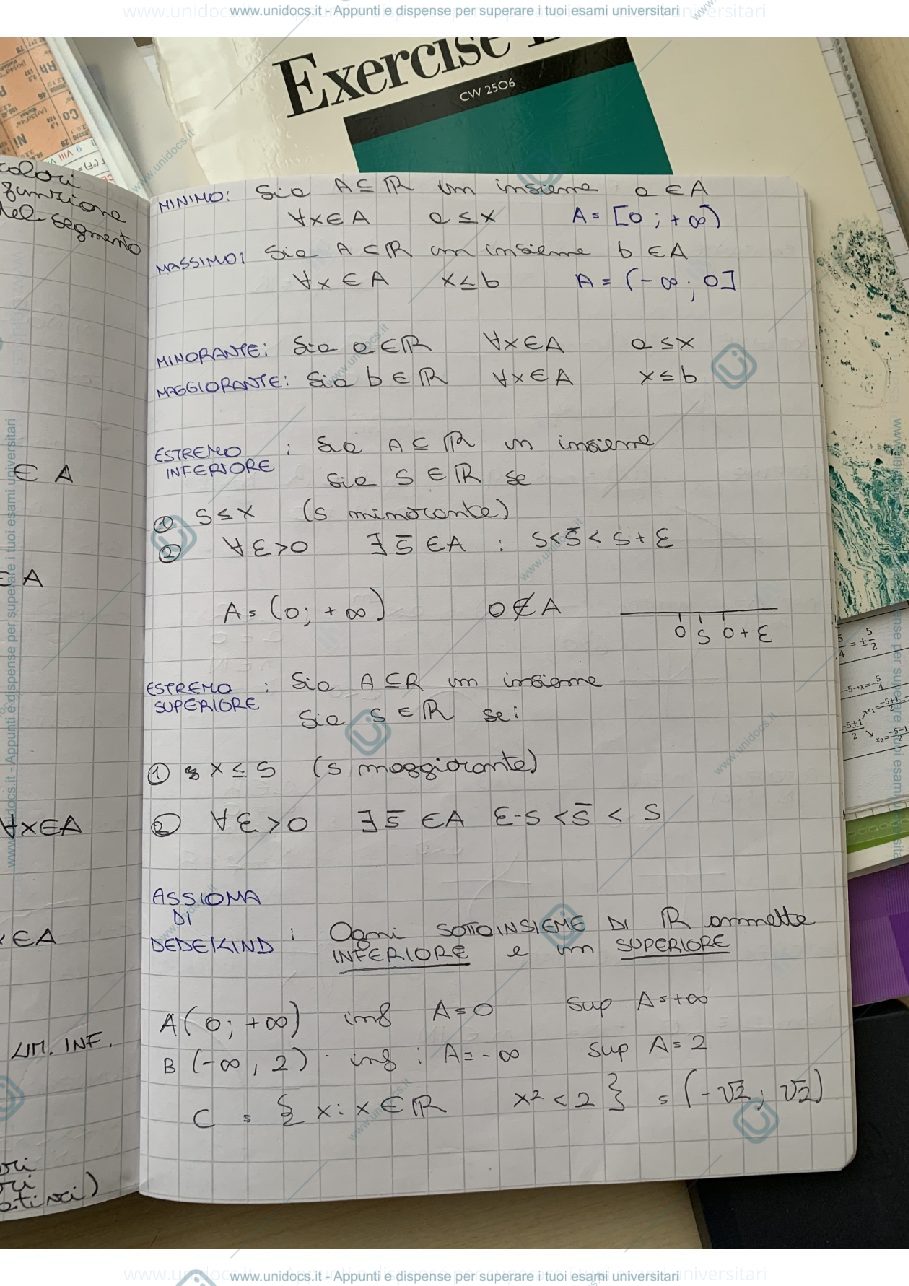 www.unidocs.it - Appunti e dispense per superare i tuoi esami universitari
Exercise
CW 2506
funzione
del segmento
MINIMO: Sia A ⊆ ℝ un insieme a ∈ A
∀x ∈ A a ≤ x A = [0 ; +∞)
MASSIMO: Sia A ⊆ ℝ un insieme b ∈ A
∀x ∈ A x ≤ b A = (-∞ ; 0]
MINORANTE: Sia a ∈ ℝ ∀x ∈ A a ≤ x
MAGGIORANTE: Sia b ∈ ℝ ∀x ∈ A x ≤ b
ESTREMO INFERIORE : Sia A ⊆ ℝ un insieme
Sia S ∈ ℝ se
① S ≤ x (s minorante)
② ∀ε > 0 ∃ s̄ ∈ A : s < s̄ < s + ε
A = (0 ; +∞) 0 ∉ A
0 s 0+ε
ESTREMO SUPERIORE : Sia A ⊆ ℝ un insieme
Sia s ∈ ℝ se:
① x ≤ S (s maggiorante)
② ∀ε > 0 ∃ s̄ ∈ A ε-s < s̄ < s
ASSIOMA
DI
DEDEKIND : Ogni SOTTOINSIEME DI ℝ ammette
INFERIORE e un SUPERIORE
A (0 ; +∞) inf A = 0 sup A = +∞
B (-∞ , 2) inf : A = -∞ sup A = 2
C = { x : x ∈ ℝ x² < 2 } = (-√2 ; √2)
∈ A
∈ A
∀x∈A
∈A
LIM. INF.
www.unidocs.it - Appunti e dispense per superare i tuoi esami universitari